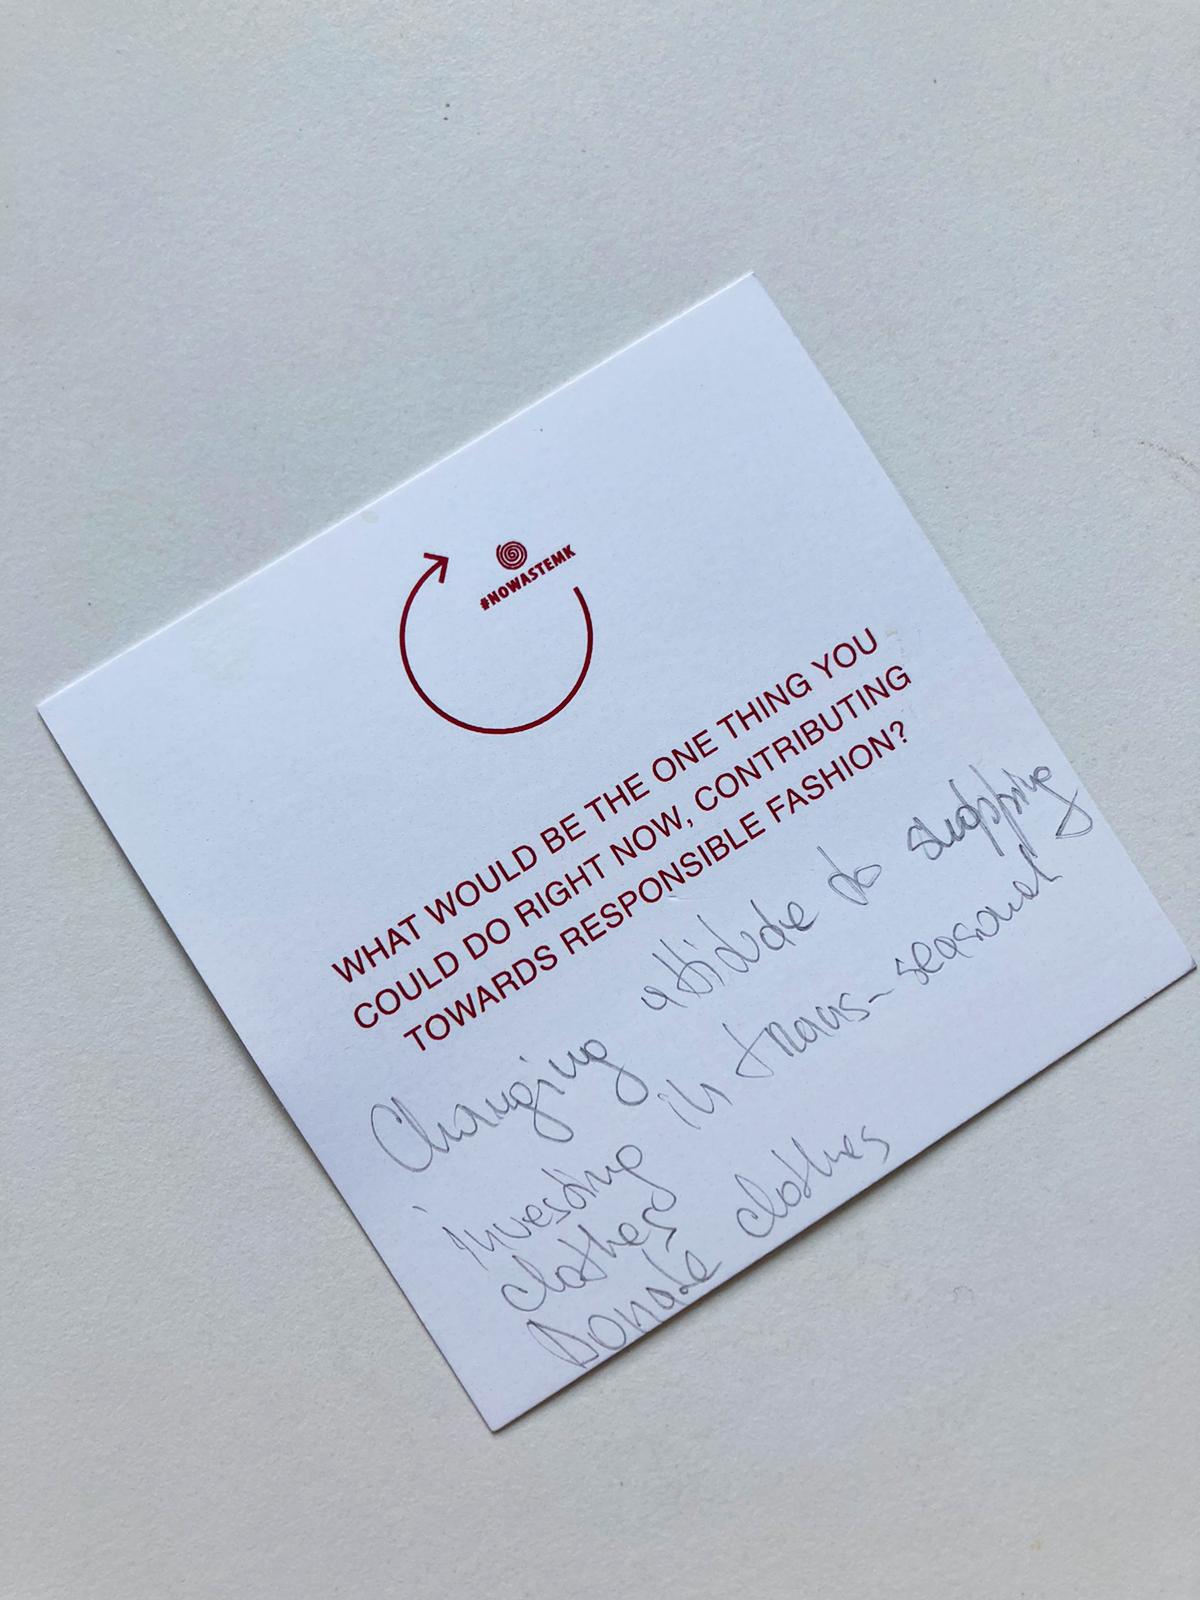 #NOWASTEMK
WHAT WOULD BE THE ONE THING YOU
COULD DO RIGHT NOW, CONTRIBUTING
TOWARDS RESPONSIBLE FASHION?
Changing attidude to shopping
investing in trans-seasonal
clothes
Donate clothes